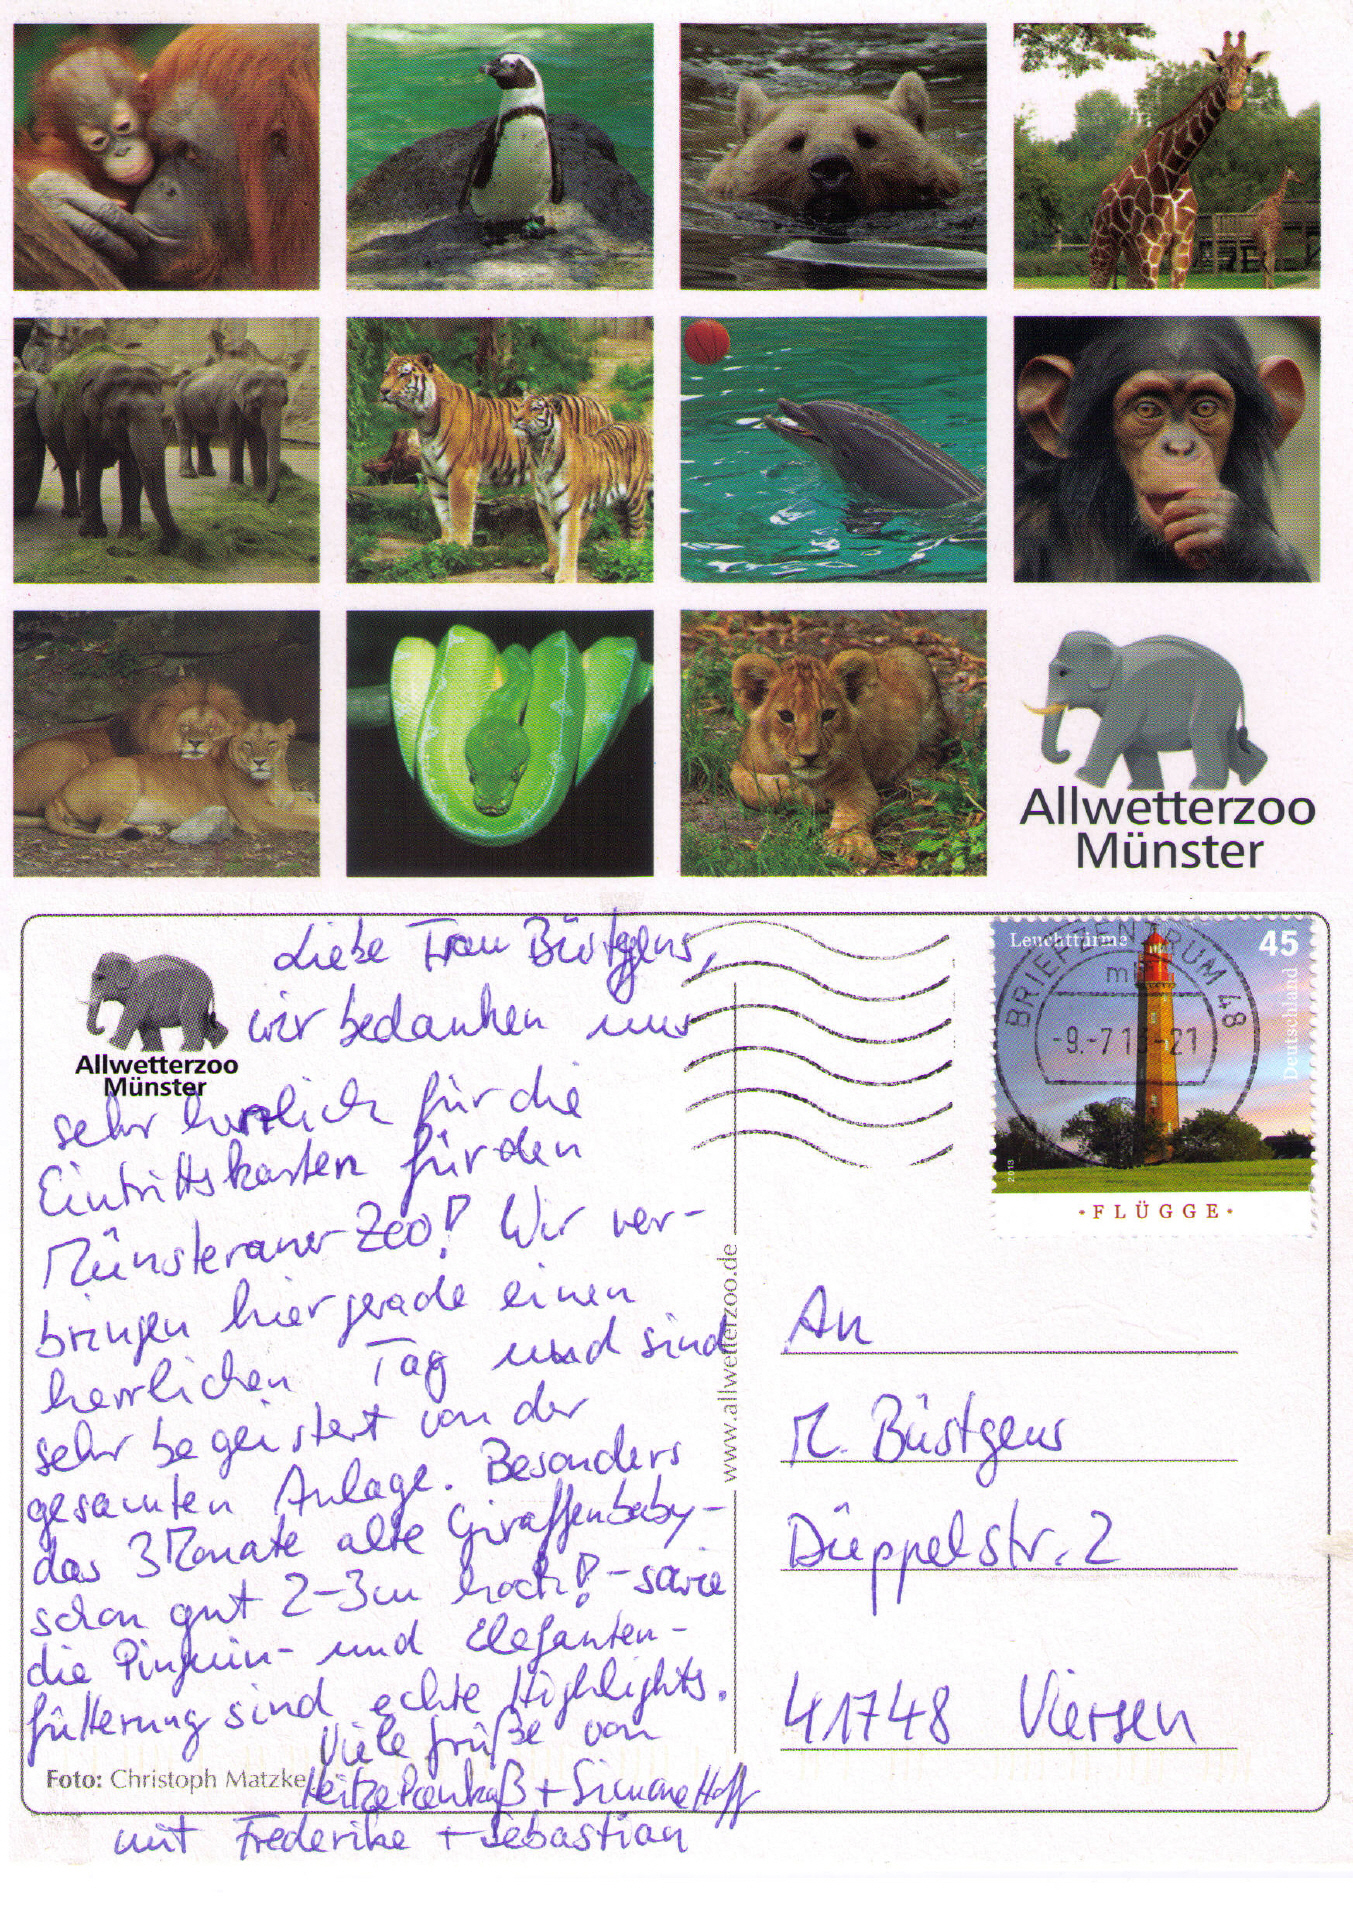 Allwetterzoo
Münster
Allwetterzoo
Münster
Liebe Frau Büstgens,
wir bedanken uns
sehr herzlich für die
Eintrittskarten für den
Münsteraner Zoo! Wir ver-
bringen hier gerade einen
herrlichen Tag und sind
sehr begeistert von der
gesamten Anlage. Besonders
das 3 Monate alte Giraffenbaby -
schon gut 2-3m hoch! - sowie
die Pinguin- und Elefanten-
fütterung sind echte Highlights.
Viele Grüße von
+ Simone Hoff
mit Frederike + Sebastian
Foto: Christoph Matzke
www.allwetterzoo.de
Leuchttürme
45
Deutschland
2013
•FLÜGGE•
BRIEFZENTRUM 48
-9.-7.13-21
An
M. Büstgens
Düppelstr. 2
41748 Viersen